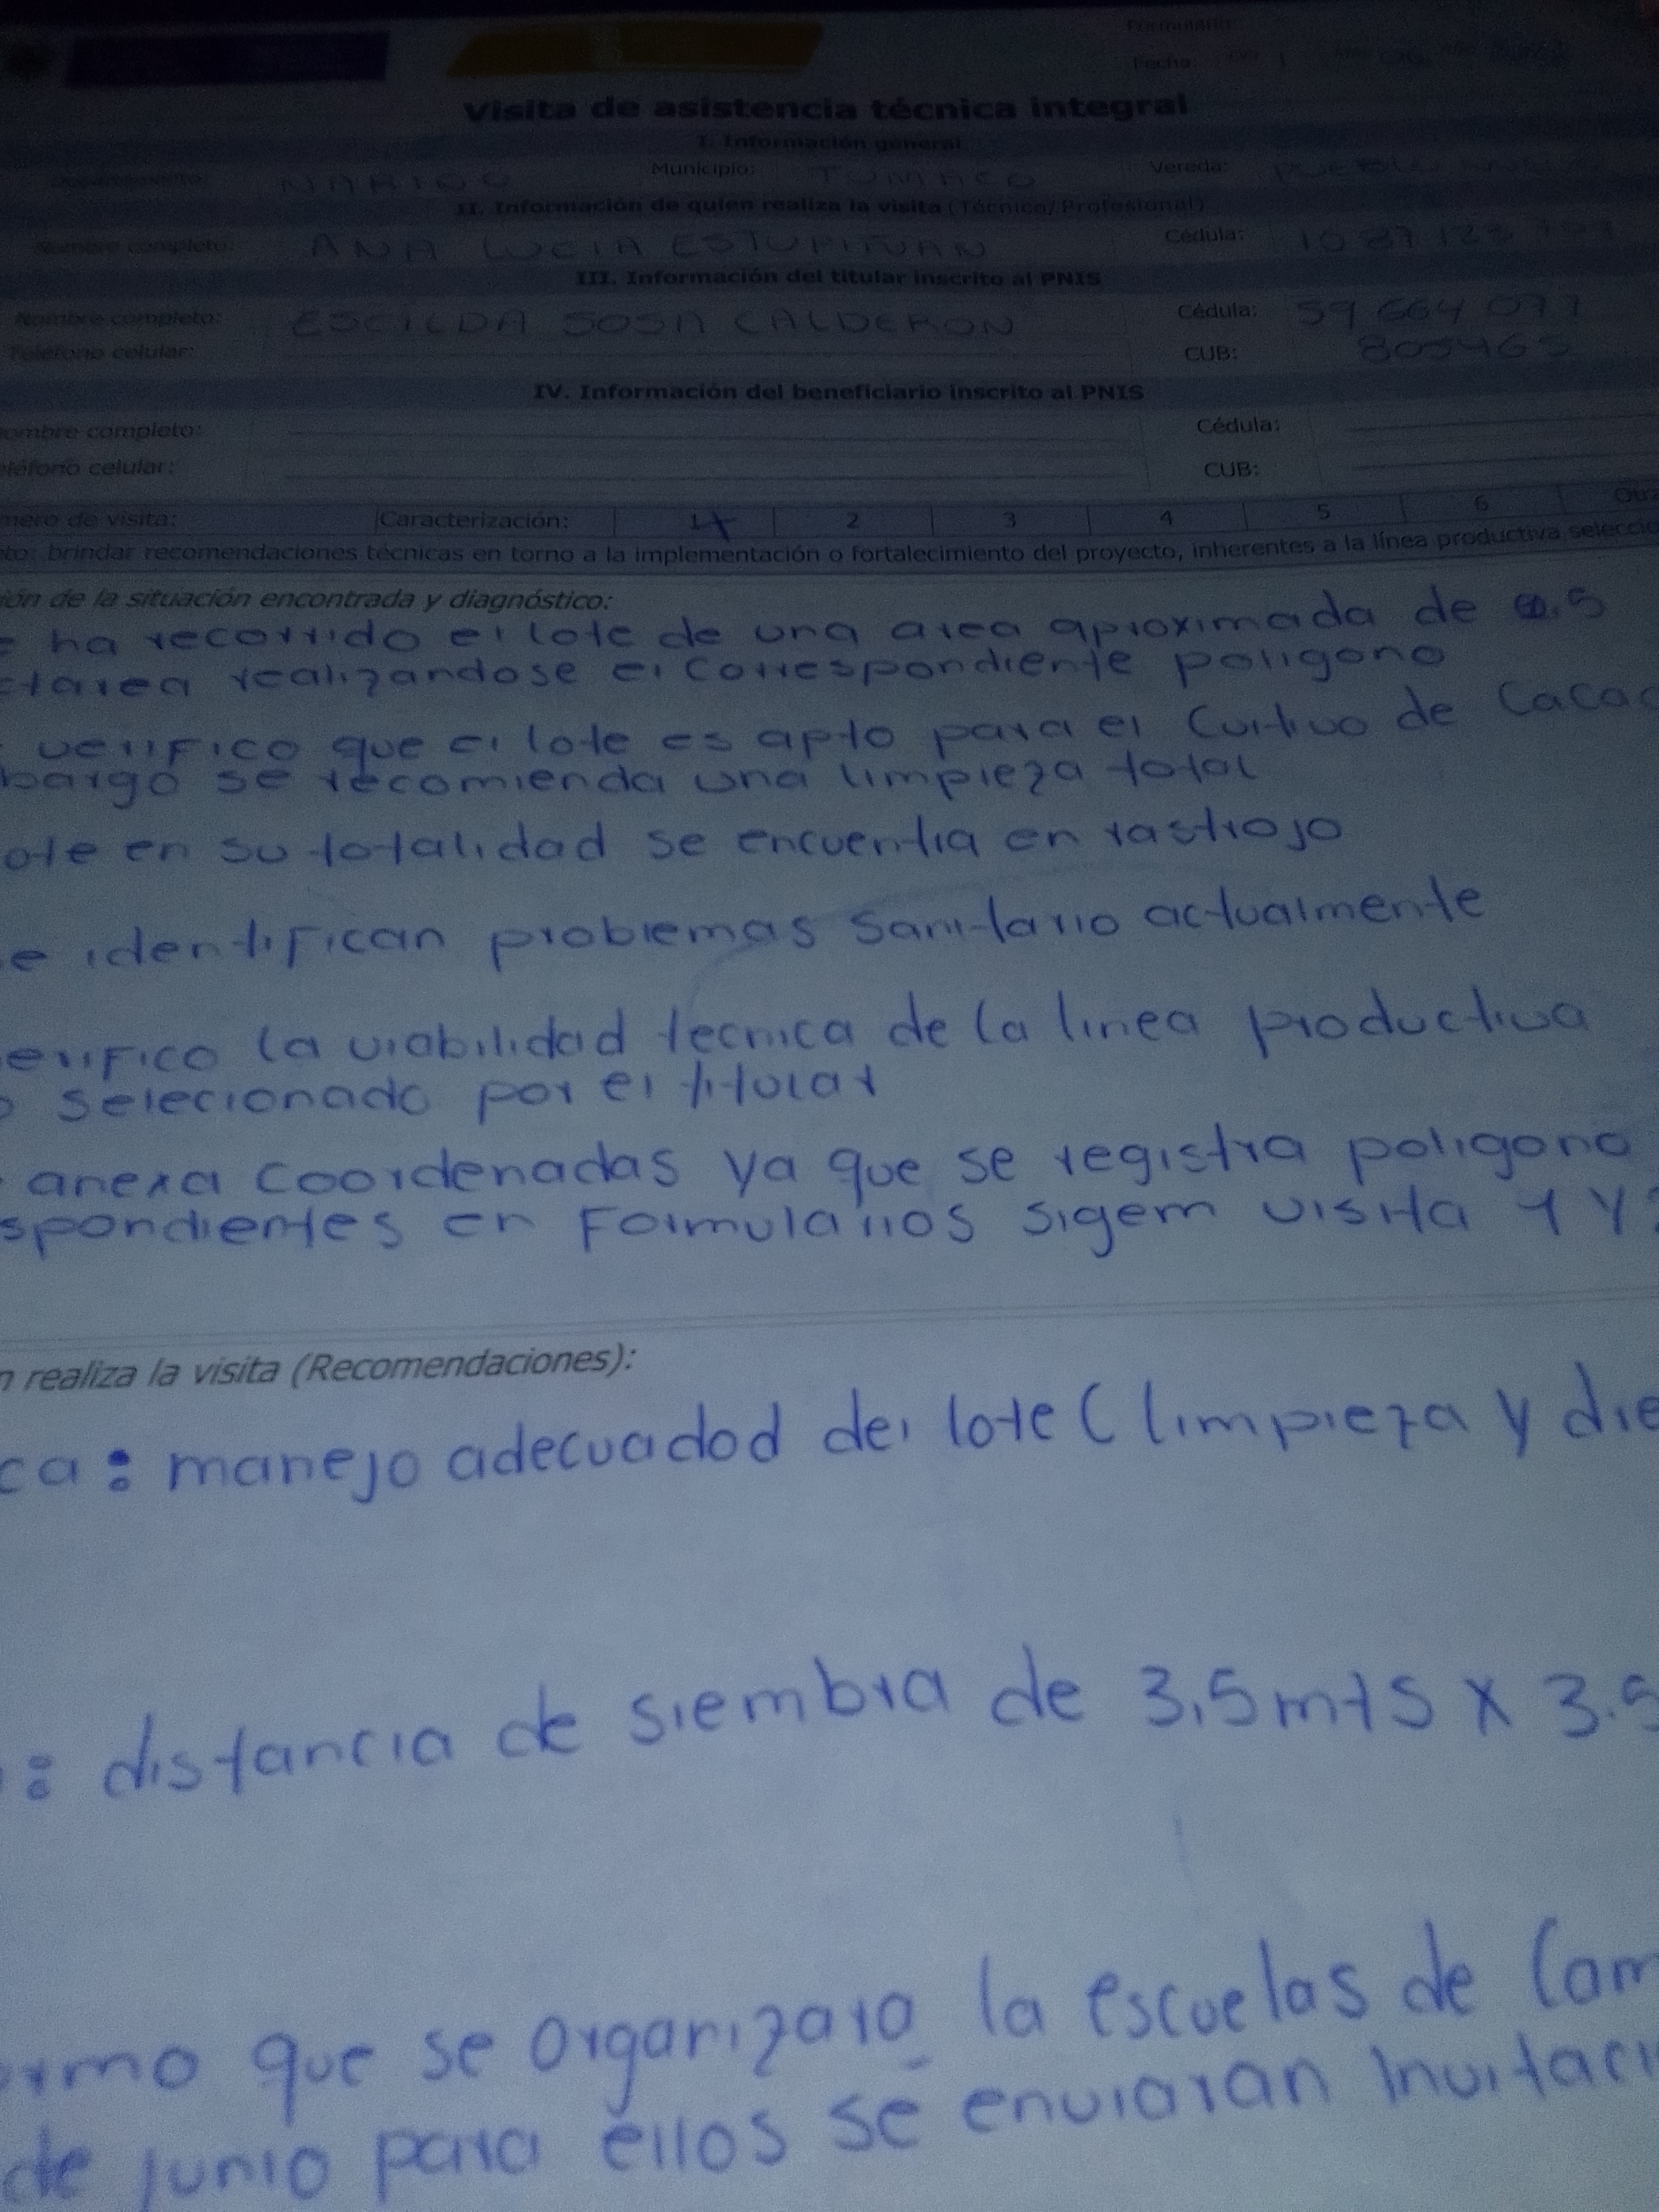 Formulario:
Fecha:
Visita de asistencia técnica integral
I. Información general
NARIÑO Municipio: TUMACO Vereda:
II. Información de quien realiza la visita (Técnico/Profesional)
Nombre completo: ANA LUCIA ESTUPIÑAN Cédula: 1087123
III. Información del titular inscrito al PNIS
Nombre completo: ESCILDA SOSA CALDERON Cédula: 59 664 077
Teléfono celular: CUB: 805465
IV. Información del beneficiario inscrito al PNIS
ombre completo: Cédula:
eléfono celular: CUB:
mero de visita: Caracterización: 1 2 3 4 5 6 Otra
to: brindar recomendaciones técnicas en torno a la implementación o fortalecimiento del proyecto, inherentes a la línea productiva seleccio
ión de la situación encontrada y diagnóstico:
e ha recorrido el lote de una area aproximada de 0.5
ctarea realizandose el correspondiente poligono
verifico que el lote es apto para el Cultivo de Cacao
bargo se recomienda una limpieza total
ote en su totalidad se encuentra en rastrojo
e identifican problemas Sanitario actualmente
erifico la viabilidad tecnica de la linea productiva
o selecionado por el titular
anexa coordenadas ya que se registra poligono
spondientes en Formularios sigem visita 1 Y
n realiza la visita (Recomendaciones):
ca: manejo adecuadod del lote (limpieza y die
: distancia de siembra de 3,5 mts X 3.5
ormo que se organizara la escuelas de Cam
de junio para ellos se enviaran invitaci